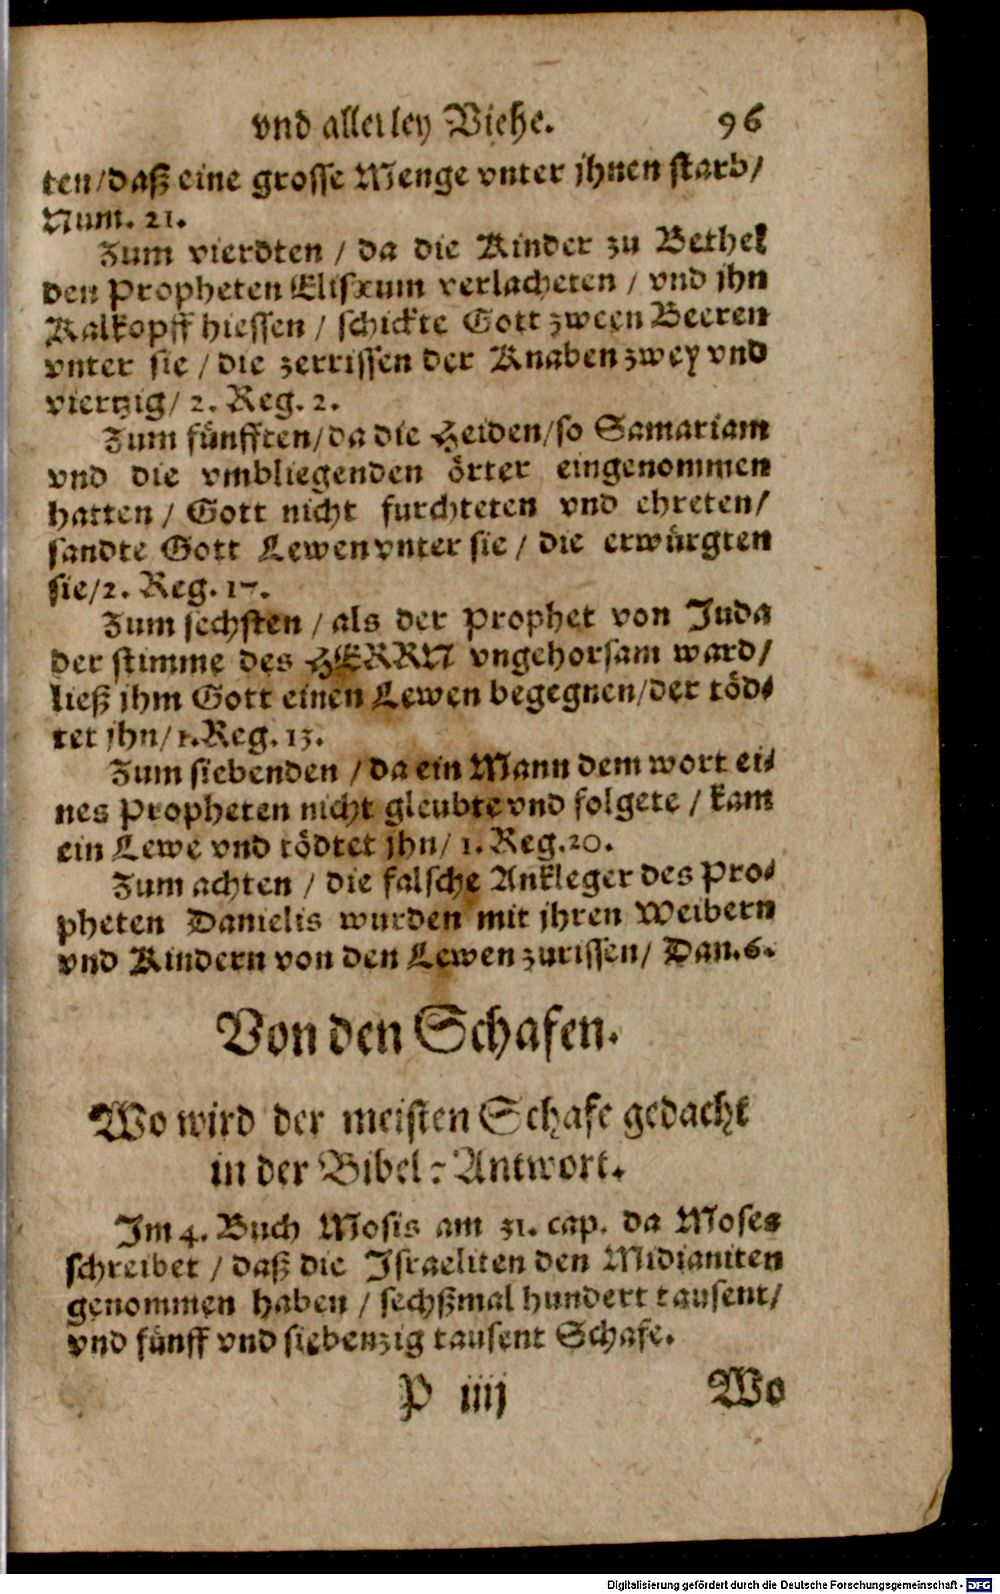 vnd allerley Viehe. 96
ten/daß eine grosse Menge vnter jhnen starb/
Num. 21.
Zum vierdten / da die Kinder zu Bethel
den Propheten Elisæum verlacheten / vnd jhn
Kalkopff hiessen / schickte Gott zween Beeren
vnter sie / die zerrissen der Knaben zwey vnd
viertzig/ 2. Reg. 2.
Zum fünfften/da die Heiden/so Samariam
vnd die vmbliegenden örter eingenommen
hatten / Gott nicht furchteten vnd ehreten/
sandte Gott Lewen vnter sie / die erwürgten
sie/2. Reg. 17.
Zum sechsten / als der Prophet von Juda
der stimme des HERRN vngehorsam ward/
ließ jhm Gott einen Lewen begegnen/der töd⸗
tet jhn/1.Reg. 13.
Zum siebenden / da ein Mann dem wort ei⸗
nes Propheten nicht gleubte vnd folgete / kam
ein Lewe vnd tödtet jhn/ 1. Reg.20.
Zum achten / die falsche Ankleger des Pro⸗
pheten Danielis wurden mit jhren Weibern
vnd Kindern von den Lewen zurissen/ Dan.6.
Von den Schafen.
Wo wird der meisten Schafe gedacht
in der Bibel? Antwort.
Im 4. Buch Mosis am 31. cap. da Moses
schreibet / daß die Israeliten den Midianiten
genommen haben / sechßmal hundert tausent/
vnd fünff vnd siebenzig tausent Schafe.
P iiij Wo
Digitalisierung gefördert durch die Deutsche Forschungsgemeinschaft - DFG